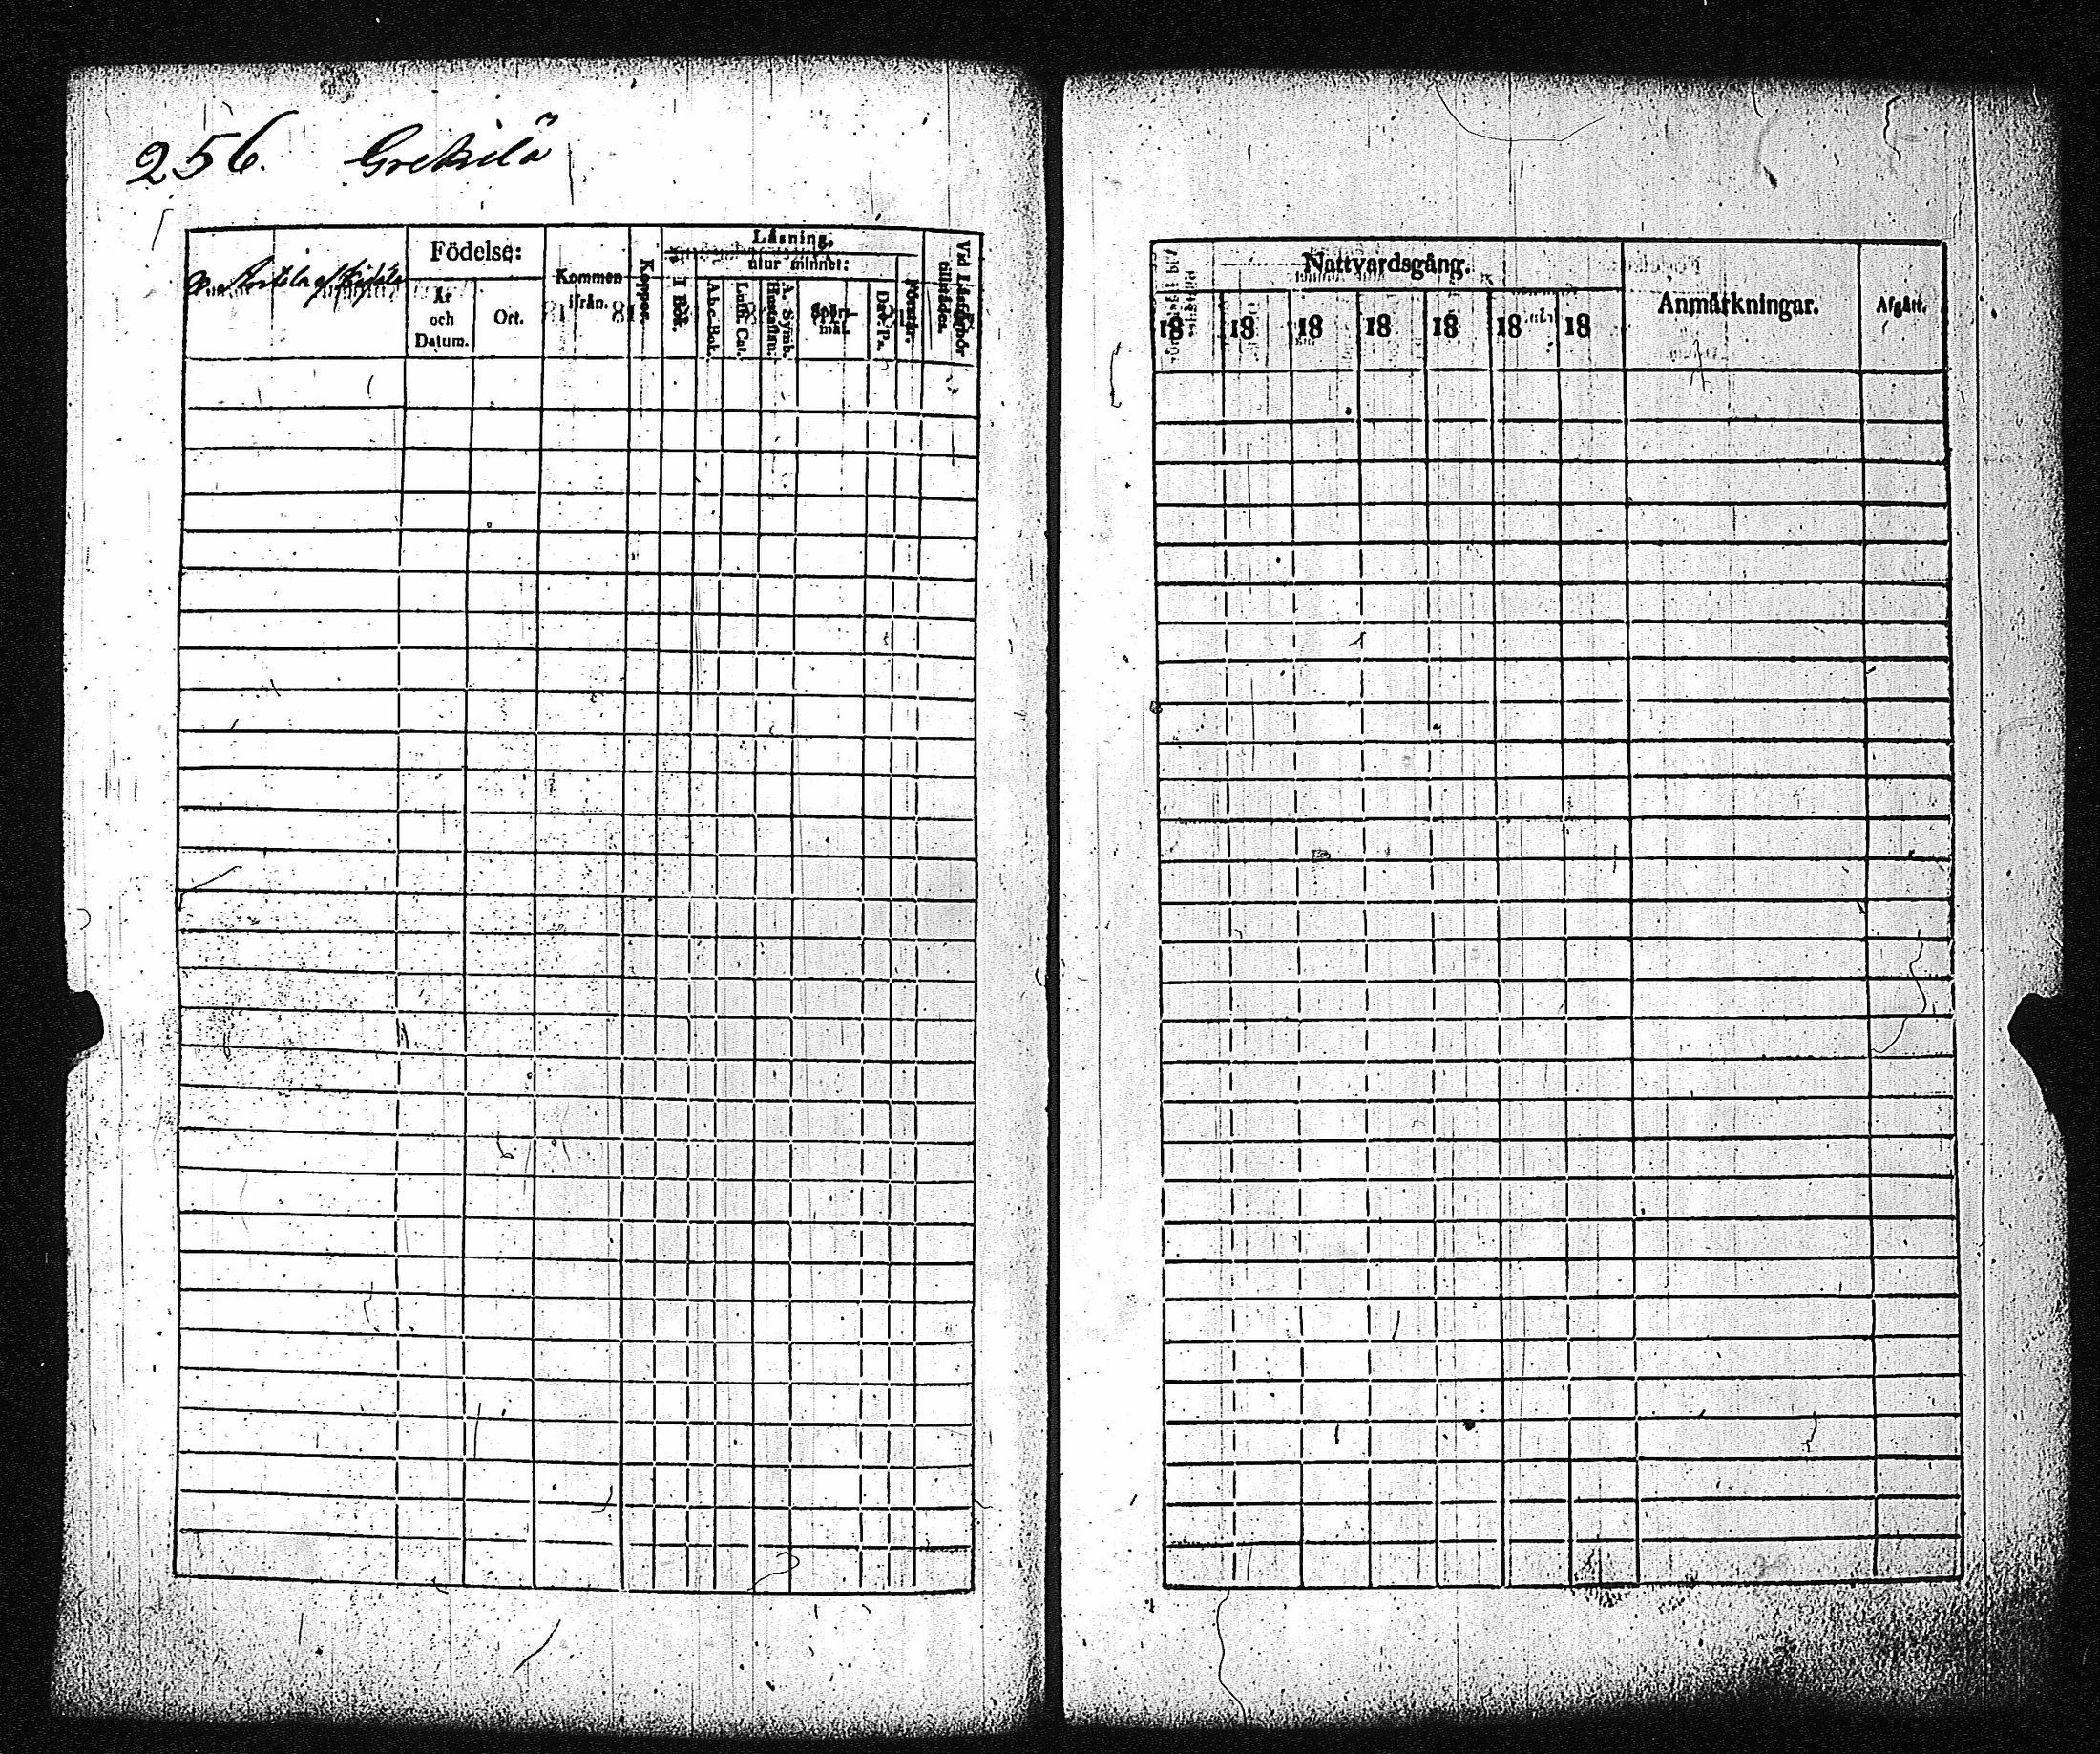 256. Grekilä
Födelse:
År och Datum.
Ort.
Kommen ifrån.
Koppor.
Läsning,
I Bok.
utur minnet:
A.b.c.Bok.
Luth. Cat.
A. Symb. Hustaflan.
Spörsmål.
Dav. Ps.
Förstår.
Vid Läsförhör tillstädes.
Nattvardsgång.
18 18 18 18 18 18 18
Anmärkningar.
Afgått.